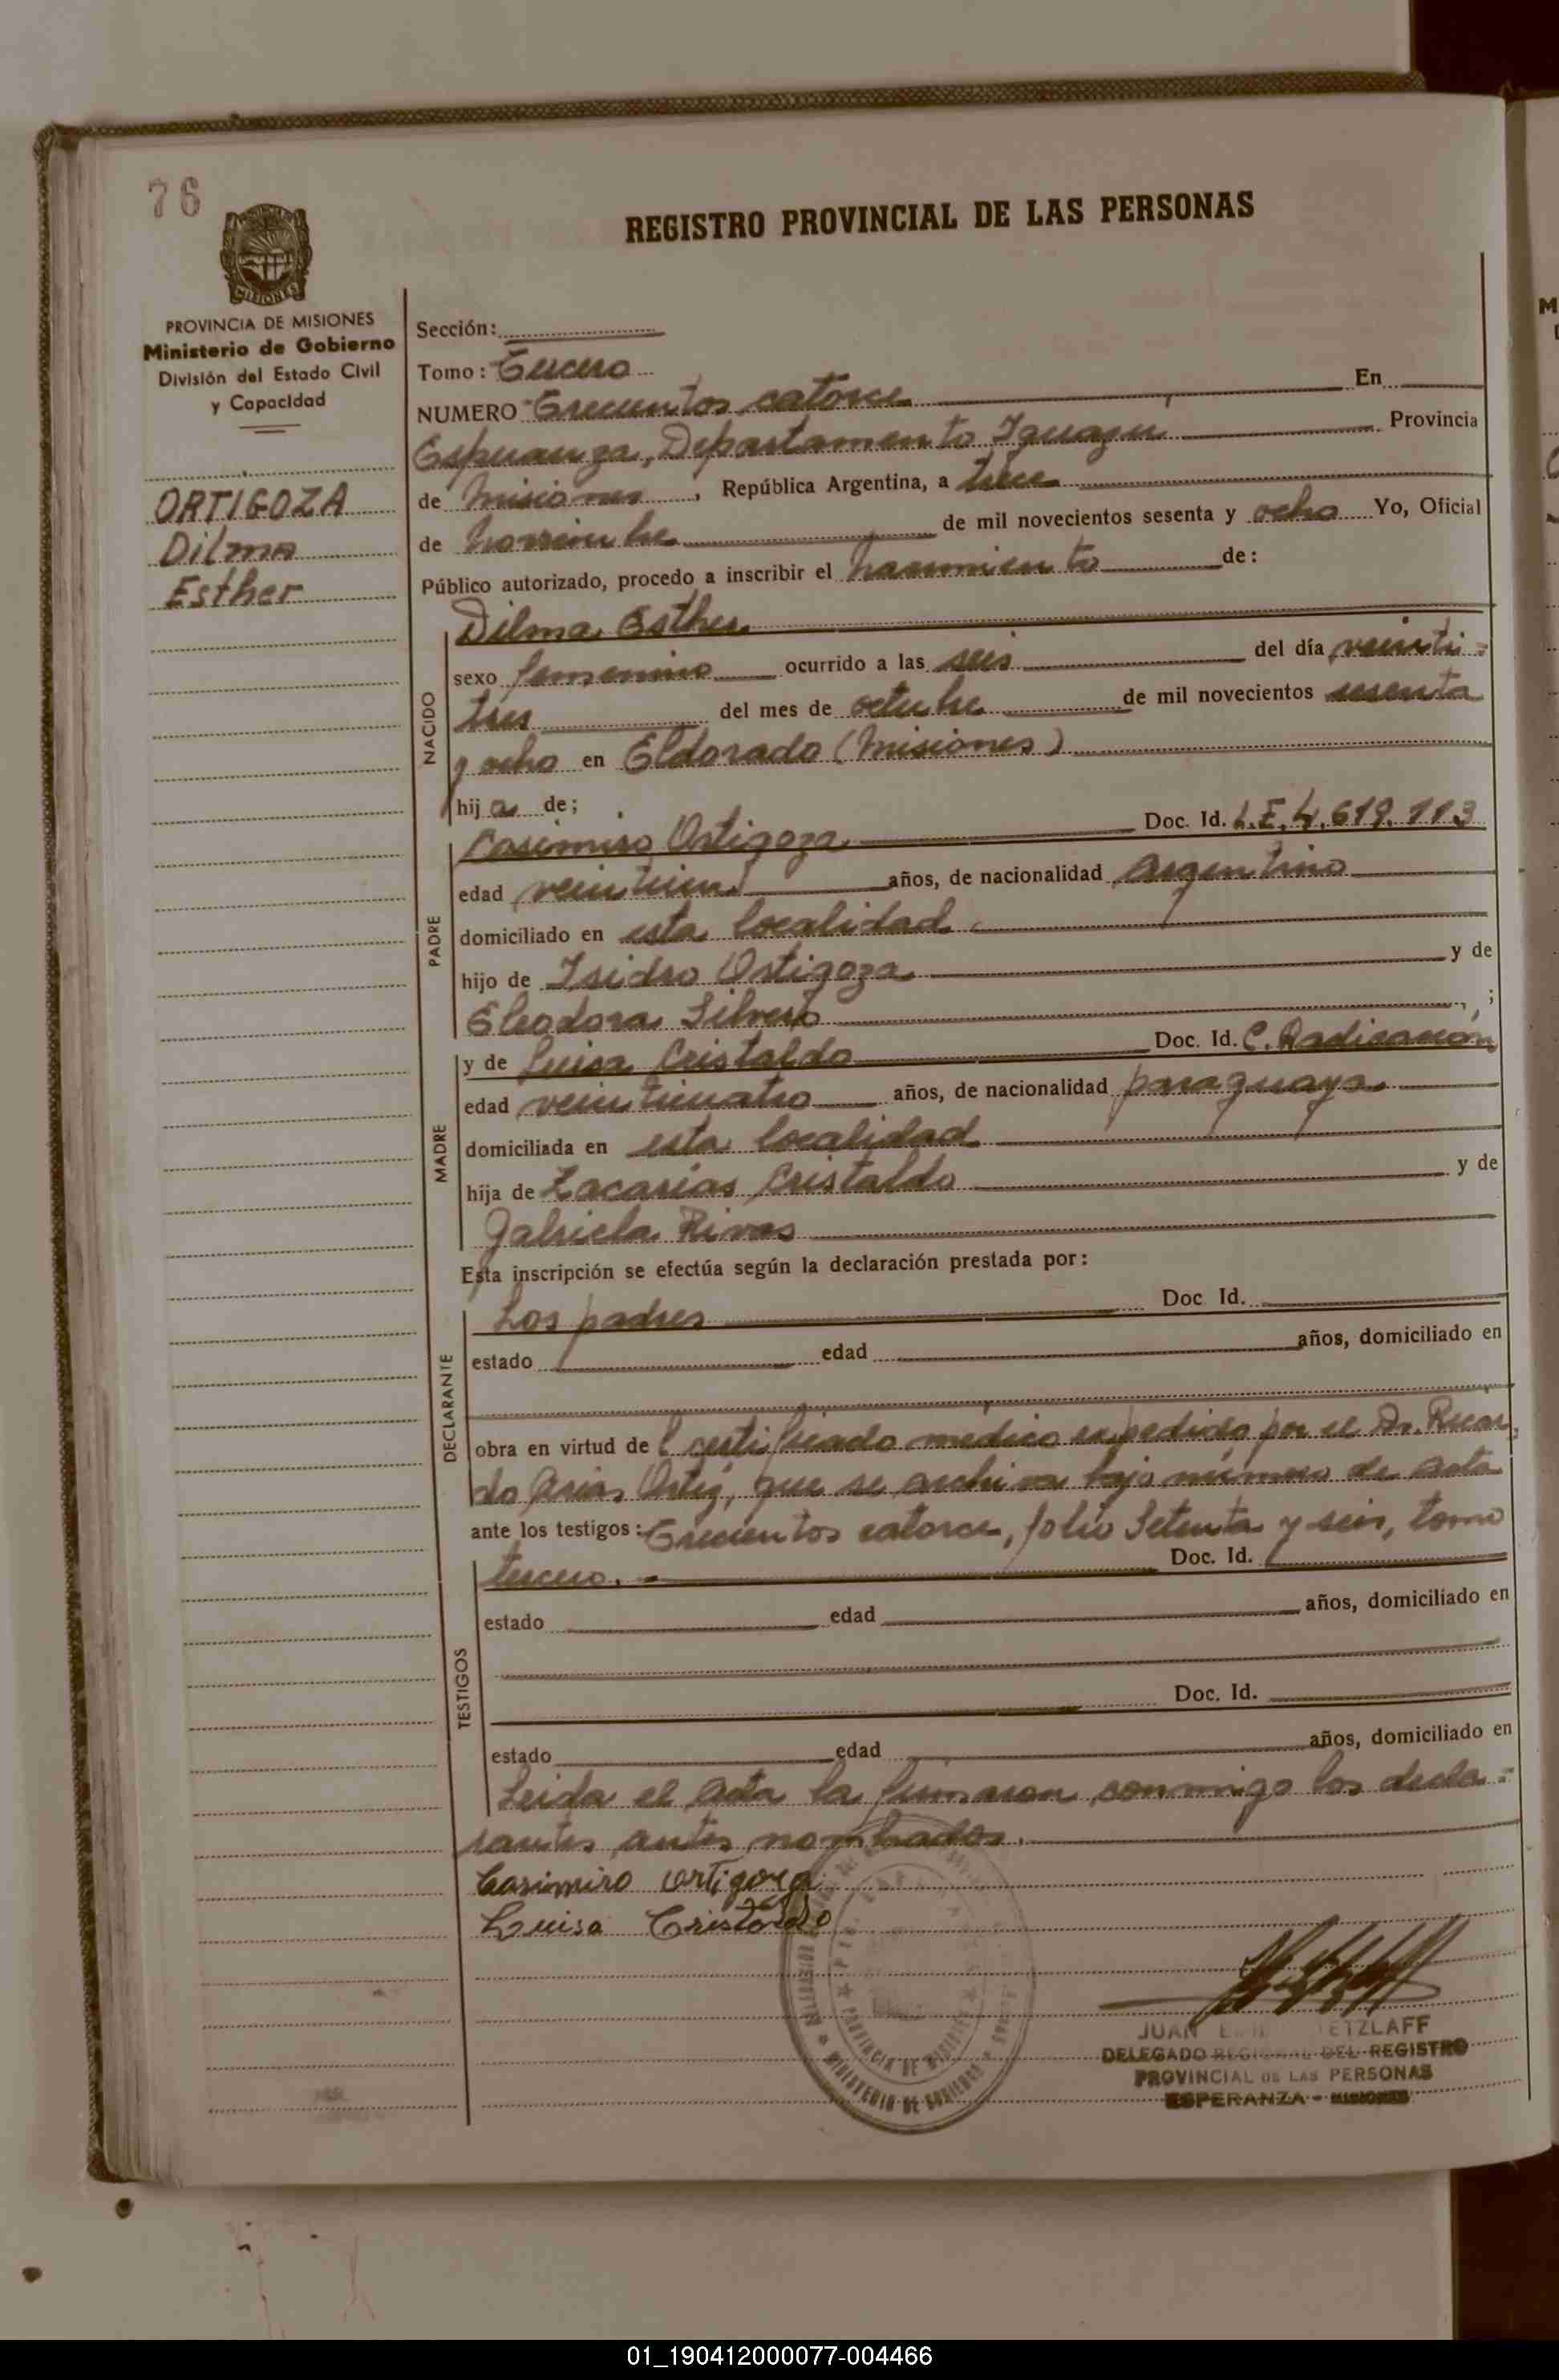 76
REGISTRO PROVINCIAL DE LAS PERSONAS
MISIONES
PROVINCIA DE MISIONES
Ministerio de Gobierno
División del Estado Civil
y Capacidad
ORTIGOZA
Dilma
Esther
Sección:
Tomo: Tercero
NUMERO Trecientos catorce En
Esperanza, Departamento Iguazu Provincia
de Misiones, República Argentina, a trece
de noviembre de mil novecientos sesenta y ocho Yo, Oficial
Público autorizado, procedo a inscribir el nacimiento de:
NACIDO
Dilma Esther
sexo femenino ocurrido a las seis del día veinti=
tres del mes de octubre de mil novecientos sesenta
y ocho en Eldorado (Misiones)
hija de;
PADRE
Casimiro Ortigoza Doc. Id. L.E. 4.619.113
edad años, de nacionalidad argentino
domiciliado en esta localidad
hijo de Isidro Ortigoza y de
Eleodora Silvero ;
MADRE
y de Luisa Cristaldo Doc. Id. C. Radicación
edad veinticuatro años, de nacionalidad paraguaya
domiciliada en esta localidad
hija de Zacarías Cristaldo y de
Gabriela Rivas
Esta inscripción se efectúa según la declaración prestada por:
DECLARANTE
Los padres Doc Id.
estado edad años, domiciliado en
obra en virtud del certificado médico expedido por el Dr. Ricar
do Arias Ortiz, que se archiva bajo número de acta
ante los testigos: Trecientos catorce, folio Setenta y seis, tomo
TESTIGOS
tercero. Doc. Id.
estado edad años, domiciliado en
Doc. Id.
estado edad años, domiciliado en
Leida el acta la firmaron conmigo los decla=
rantes antes nombrados.
Casimiro Ortigoza
Luisa Cristaldo
PROVINCIA DE MISIONES
MINISTERIO DE GOBIERNO
JUAN ETZLAFF
DELEGADO REGIONAL DEL REGISTRO
PROVINCIAL DE LAS PERSONAS
ESPERANZA - MISIONES
01_190412000077-004466